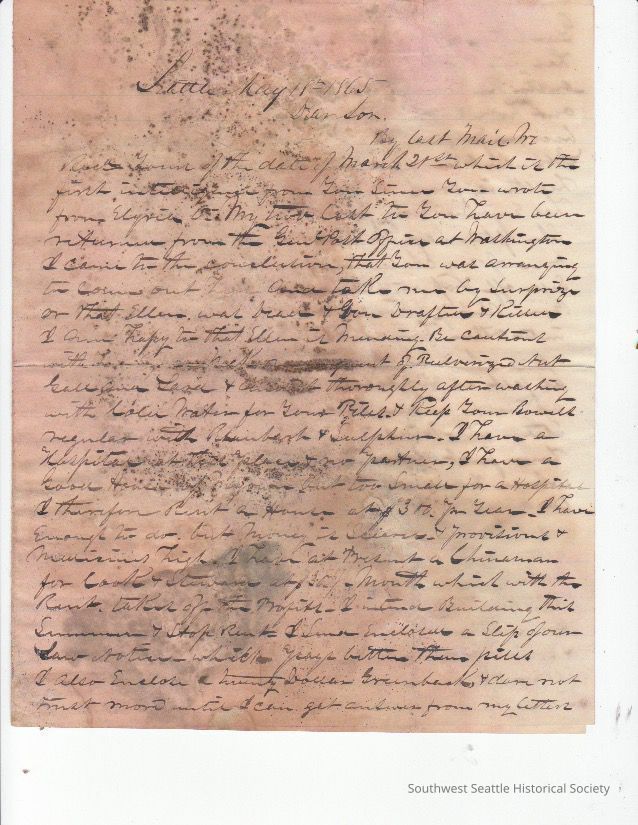 Seattle May 18th 1865
Dear Son.
By last Mail We
Rec'd Yours of the date of March 21st which is the
first intelligence from You Since You wrote
from Elyria O. My two last to You have been
returned from the Genl Post Office at Washington
I came to the conclusion, that You was arranging
to come out here and take me by Surprize
or that Ellen was Dead & You Drafted & Killed
I am happy to that Ellen is Mending. Be Cautious
with Pulverized Nut
Gall and Lard & thoroughly after washing
with Cold Water for Your Piles & Keep Your Bowels
regular with Rheubarb & Sulphur. I have a
Hospital at this place & no partner, I have a
Good House of my own but too Small for a Hospital
I therefore Rent a House at $300. pr Year. I have
Enough to do, but Money is Scarce & provisions &
Medicines high. I have at Present a Chinaman
for Cook & Steward at Month which with the
Rent. takes off the Profits. I intend Building this
Summer & Stop Rent. I Send Enclosed a Slip of our
Law Notice which pays better than pills
I also Enclose a twenty Dollar Greenback, & dare not
trust more until I can get answer from my letters
Southwest Seattle Historical Society